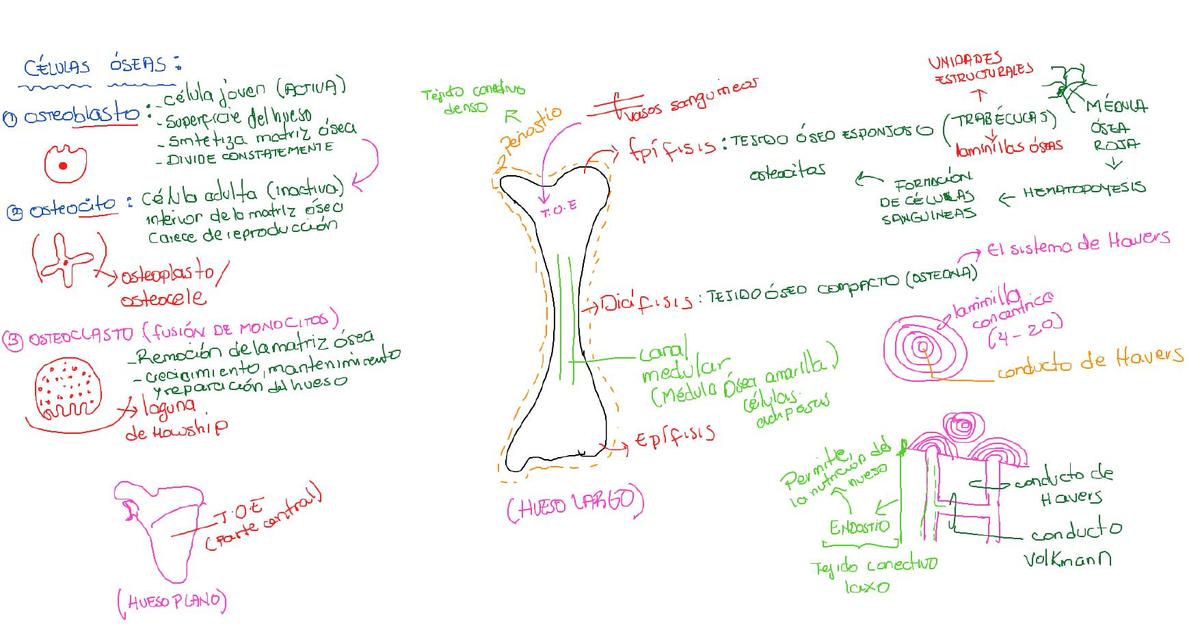 CÉLULAS ÓSEAS:
① osteoblasto: - célula joven (ACTIVA)
- Superficie del hueso
- Sintetiza matriz ósea
- DIVIDE CONSTATEMENTE
② osteocito: célula adulta (inactiva)
interior de la matriz ósea
Carece de reproducción
osteoplasto/
osteocele
③ OSTEOCLASTO (FUSIÓN DE MONOCITOS)
- Remoción de la matriz ósea
- crecimiento, mantenimiento
y reparación del hueso
laguna
de Howship
T.O.E
(Parte central)
(HUESO PLANO)
Tejido conectivo
denso
Periostio
vasos sanguineos
T.O.E
Epífisis: TEJIDO ÓSEO ESPONJOSO (TRABÉCULAS)
osteocitos
UNIDADES
ESTRUCTURALES
laminillas óseas
MÉDULA
ÓSEA
ROJA
HEMATOPOYESIS
FORMACIÓN
DE CÉLULAS
SANGUINEAS
Diáfisis: TEJIDO ÓSEO COMPACTO (OSTEONA)
El sistema de Havers
laminilla
concentrica
(4-20)
conducto de Havers
canal
medular
(Médula Ósea amarilla)
células
adiposas
Epífisis
(HUESO LARGO)
Permite
la nutrición del
hueso
ENDOSTIO
Tejido conectivo
laxo
conducto de
Havers
conducto
Volkmann